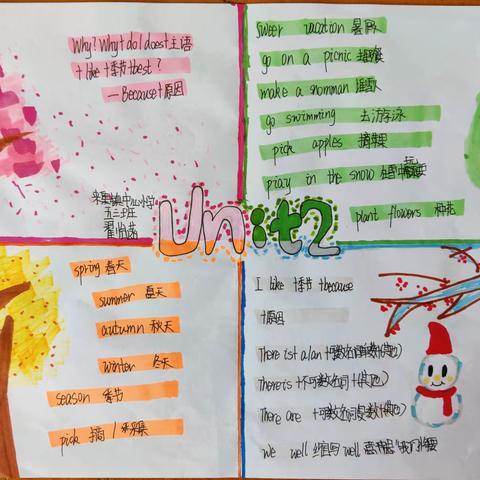 Why? Why+do/does+主语
+like+季节+best?
—Because+原因
中心小学
五三班
Unit2
sweer vacation 暑假
go on a picnic
make a snowman 堆雪人
go swimming 去游泳
pick apples 摘苹果
play in the snow
plant flowers 种花
spring 春天
summer 夏天
autumn 秋天
winter 冬天
season 季节
pick 摘/采集
I like +季节+because
+原因
There is+a/an+可数名词单数+(其他)
There is+不可数名词+(其他)
There are +可数名词复数+(其他)
we well 缩写 well